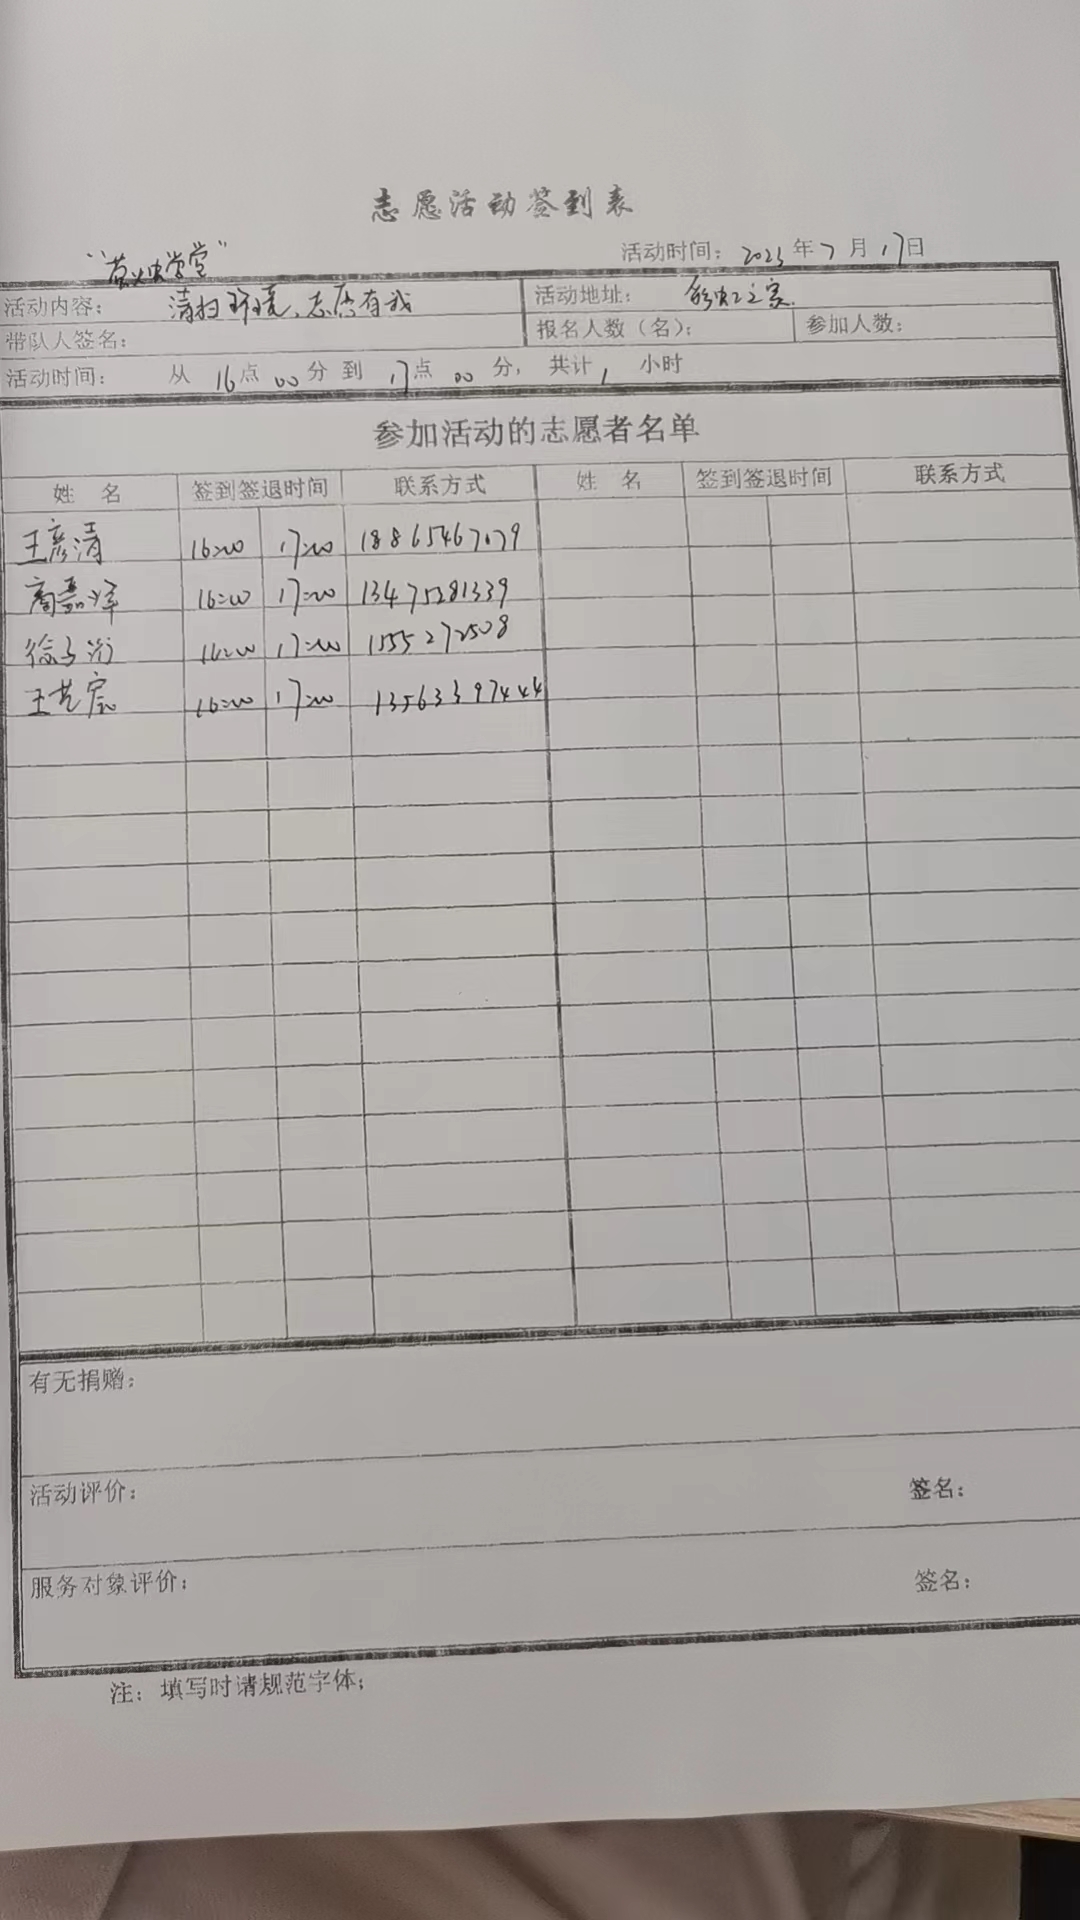 志愿活动签到表
活动时间：2023年7月17日
“萤火虫学堂”
活动内容：清扫环境、志愿有我 活动地址：彩虹之家.
带队人签名： 报名人数（名）： 参加人数：
活动时间： 从16点00分到17点00分，共计1小时
参加活动的志愿者名单
姓 名 签到签退时间 联系方式 姓 名 签到签退时间 联系方式
王彦清 16:00 17:00 18865467079
商嘉泽 16:00 17:00 13475281339
徐子 16:00 17:00 1555272508
王艺宸 16:00 17:00 13563397444
有无捐赠：
活动评价： 签名：
服务对象评价： 签名：
注：填写时请规范字体；